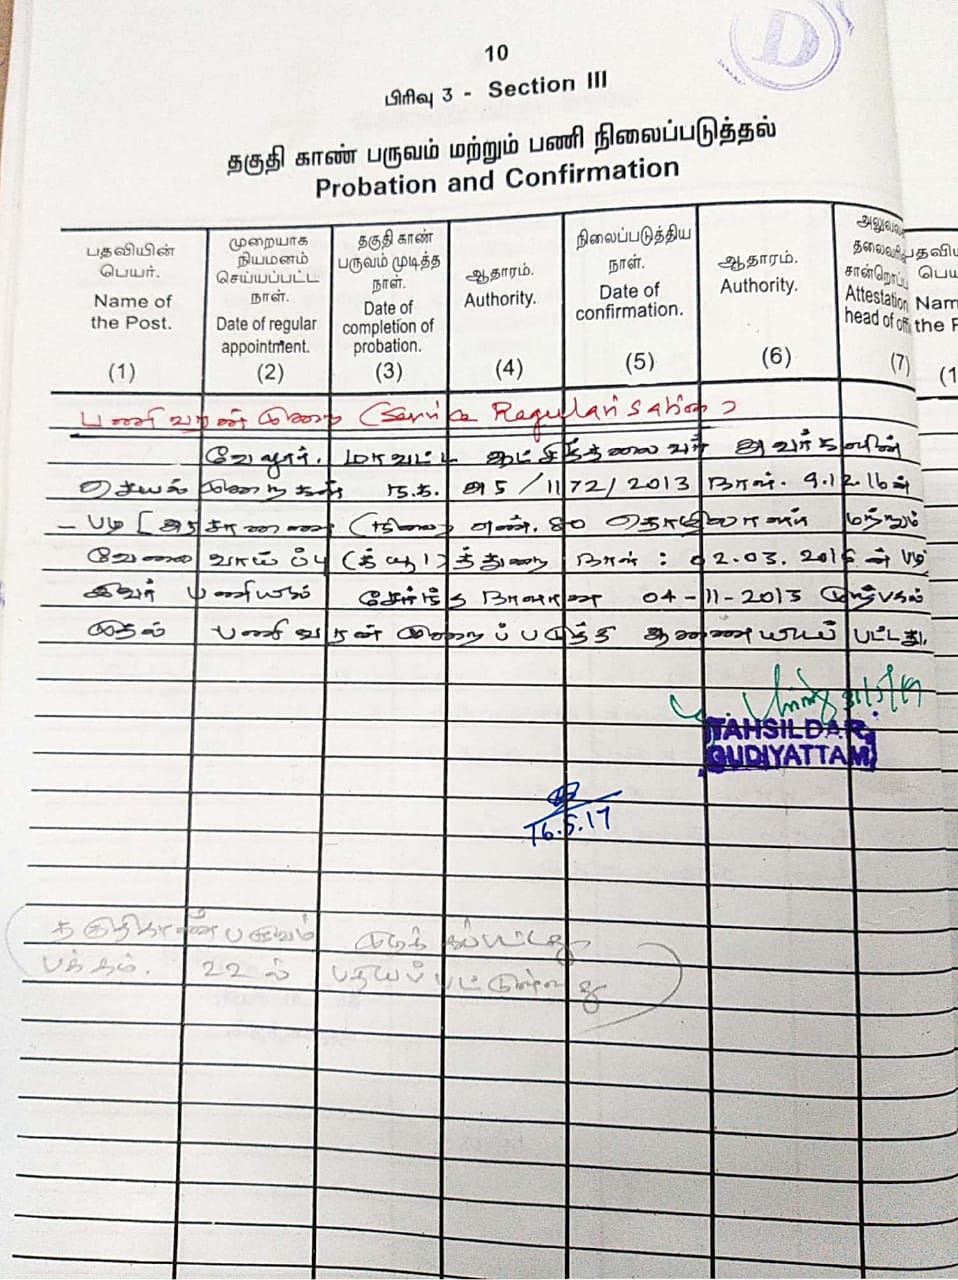 D
10
பிரிவு 3 - Section III
தகுதி காண் பருவம் மற்றும் பணி நிலைப்படுத்தல்
Probation and Confirmation
பதவியின் பெயர். Name of the Post. (1)
முறையாக நியமனம் செய்யப்பட்ட நாள். Date of regular appointment. (2)
தகுதி காண் பருவம் முடித்த நாள். Date of completion of probation. (3)
ஆதாரம். Authority. (4)
நிலைப்படுத்திய நாள். Date of confirmation. (5)
ஆதாரம். Authority. (6)
அலுவல தலைவரி சான்றொப்ப Attestation head of offi (7)
பதவிய பெய Nam the P (1
பணி வரன் முறை (Service Regularisation)
வேலூர். மாவட்ட ஆட்சித்தலைவர் அவர்களின்
செயல் முறைகள் ந.க. அ5/1172/2013 நாள். 9.12.16ன்
-படி [அரசாணை (நிலை) எண். 80 தொழிலாளர் மற்றும்
வேலை வாய்ப்பு (த்துறை நாள் : 02.03.2016 ன் படி
இவர் பணியில் சேர்ந்த நாளான 04-11-2013 முற்பகல்
முதல் பணி வரன் முறைப்படுத்தி ஆணையிடப் பட்டது.
31/5/17
TAHSILDAR
GUDIYATTAM
16.5.17
தகுதிகாண் பருவம் முடிக்கப்பட்டது
பக்கம். 22 ல் பதியப் பட்டுள்ளது